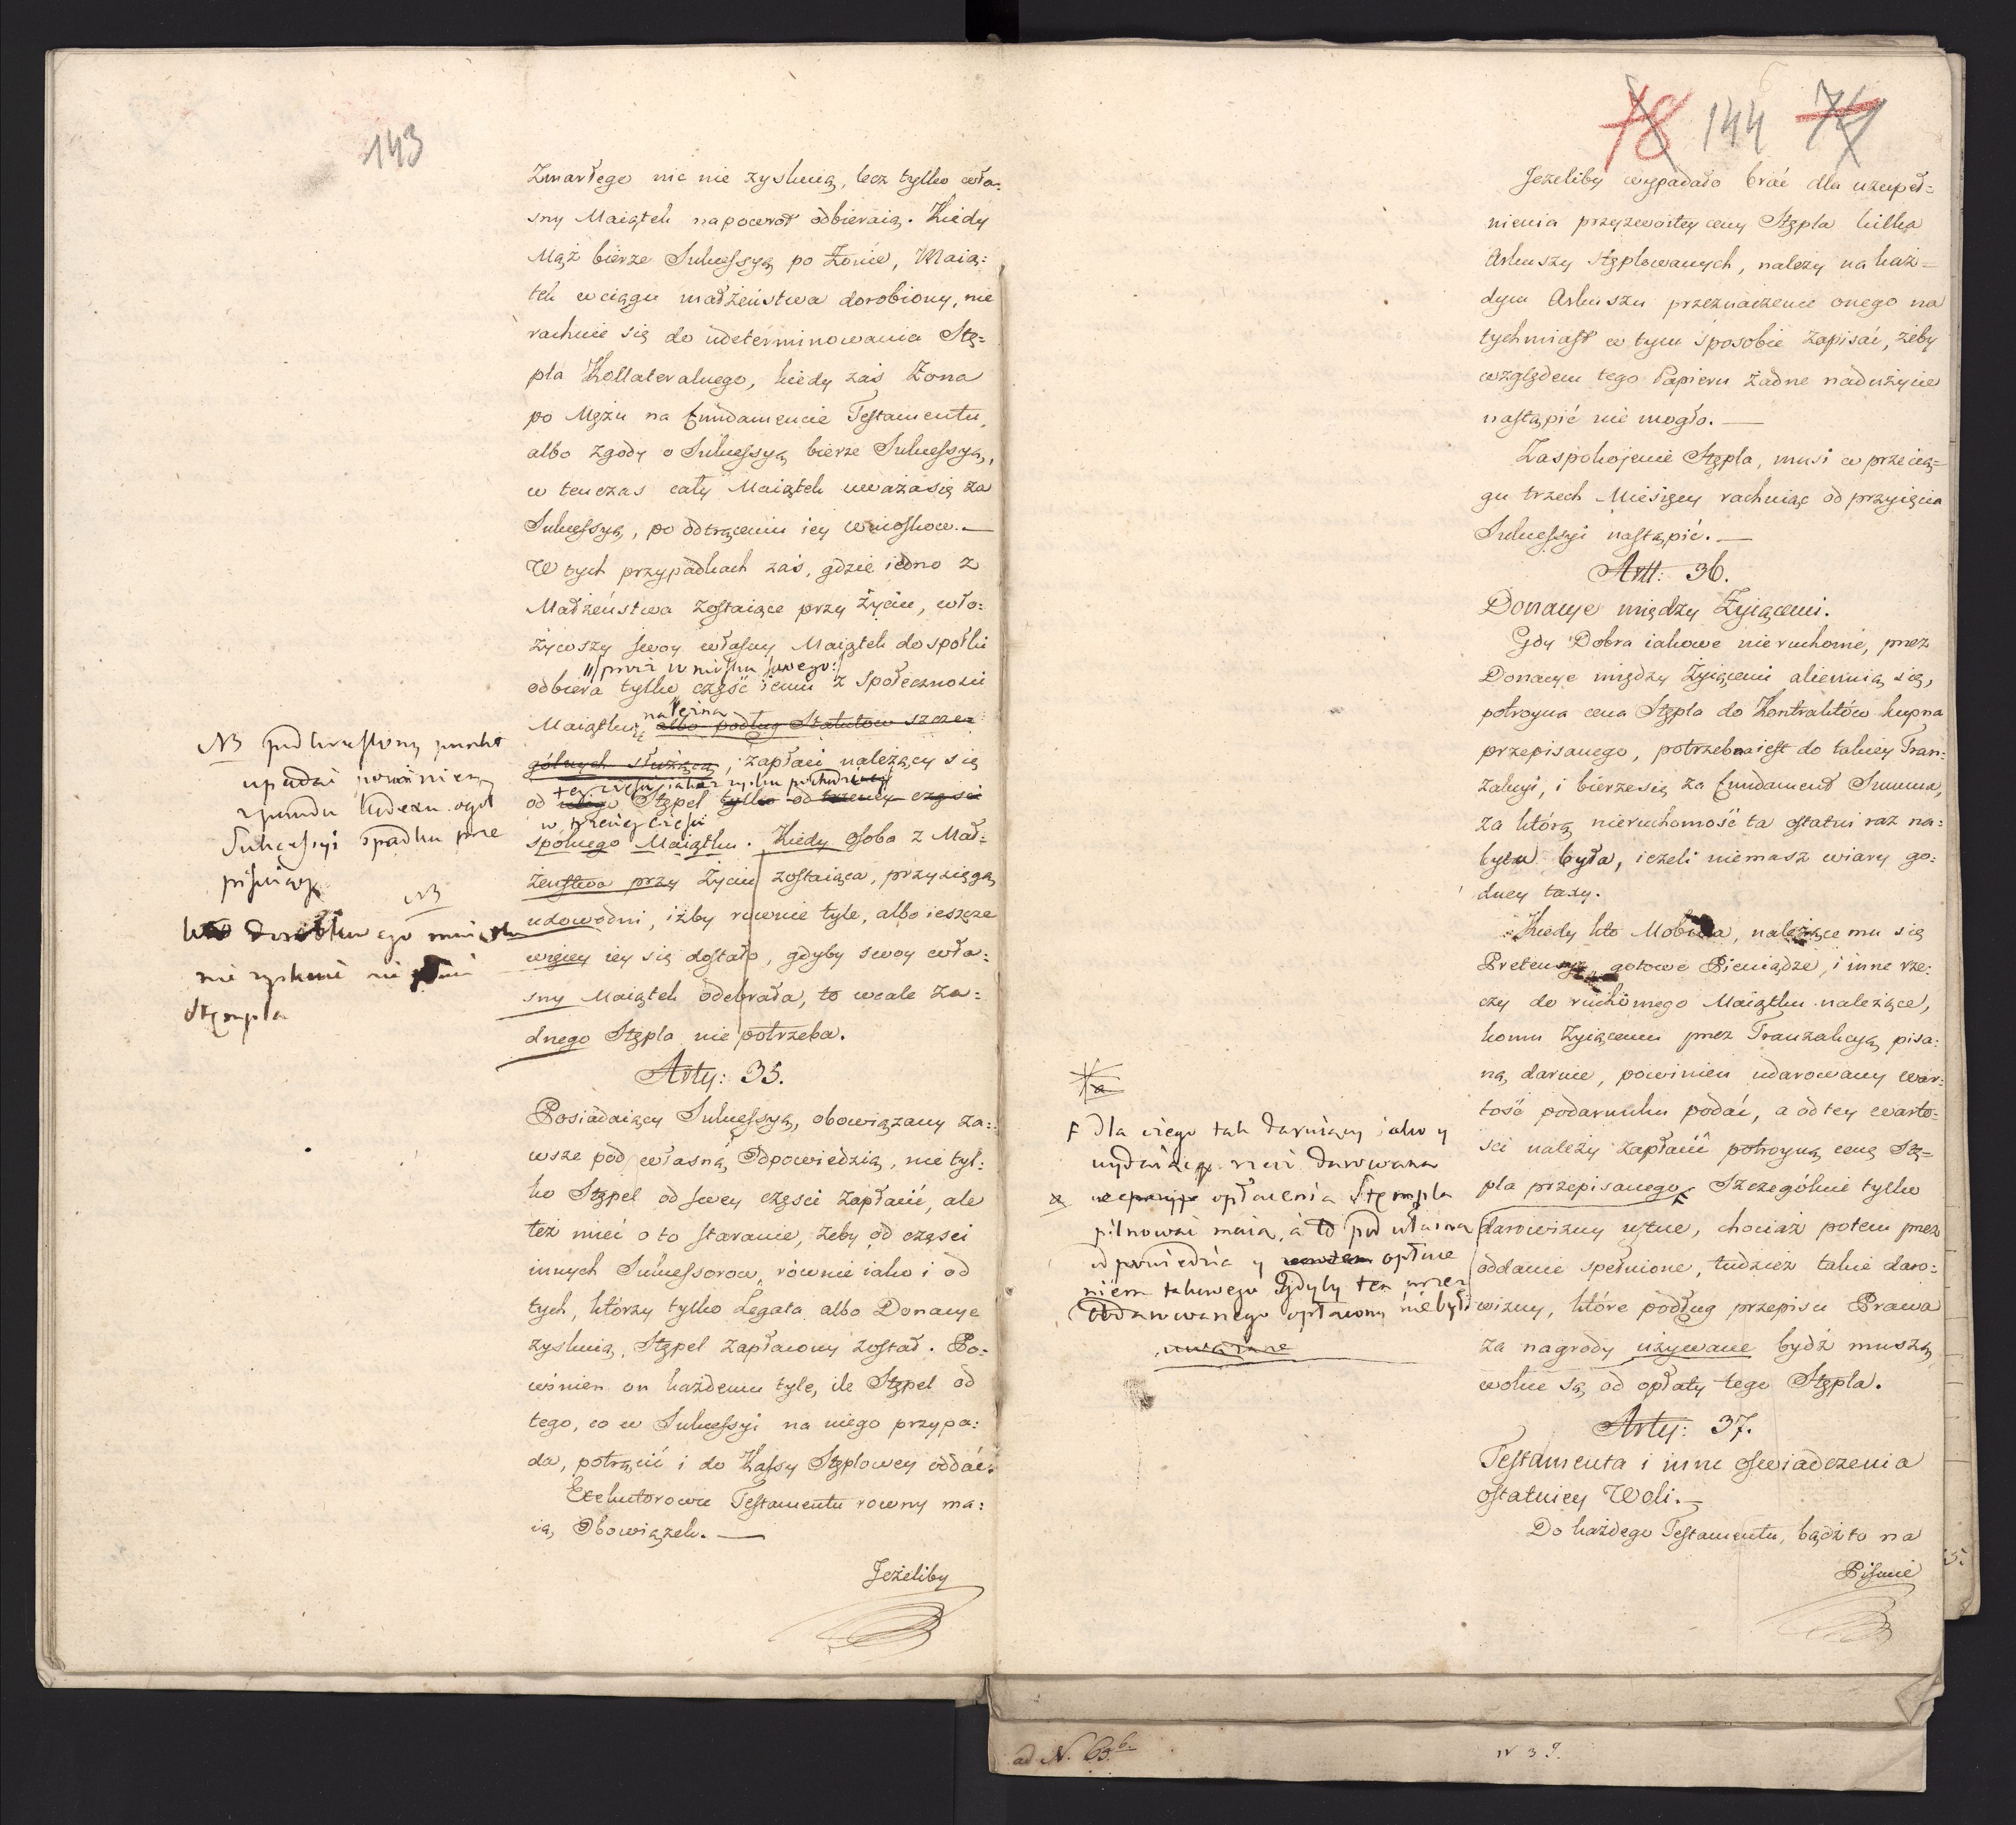 143
Zmarłego nic nie zyskuią, lecz tylko wła:
sny Maiątek napowrot odbieraią. Kiedy
Mąż bierze Sukcessyą po Żonie, Maią:
tek wciągu małżeństwa dorobiony, nie
rachuie się do udeterminowania Stę=
pla Kollateralnego, kiedy zaś Żona
po Mężu na fundamencie Testamentu,
albo zgody o Sukcessyą bierze Sukcessyą,
w tenczas cały Maiątek uważa się za
Sukcessyą, po odtrąceniu iey wnioskow.—
W tych przypadkach zaś, gdzie iedno z
Małżeństwa zostaiące przy Życiu, wło:
żywszy swoy własny Maiątek do społki
prócz wniosku swego
odbiera tylko część iemu z Społeczności
Maiątku należną albo podług Statutow szcze=
gólnych służącą, zapłaci należący się
tey części iako zysku pochodzącey
od Stępel tylko od trzeciey części
w trzeciey części
spólnego Maiątku. Kiedy osoba z Mał:
żeństwa przy Życiu zostaiąca, przysięgą
udowodni, iżby rownie tyle, albo ieszcze
więcey iey się dostało, gdyby swoy wła:
sny Maiątek odebrała, to wcale ża:
dnego Stępla nie potrzeba.
Arty: 35.
Posiadaiący Sukcessyą, obowiązany za:
wsze pod własną Odpowiedzią, nie tyl:
ko Stępel od swey części zapłacić, ale
też mieć o to staranie, żeby od części
innych Sukcessorow, równie iako i od
tych, którzy tylko Legata albo Donacye
zyskuią, Stępel zapłacony został. Po:
winien on każdemu tyle, ile Stępel od
tego, co w Sukcessyi na niego przypa:
da, potrącić i do Kassy Stęplowey oddać.
Exekutorowie Testamentu rowny ma:
ią Obowiązek.—
Jeżeliby
NB podkreslony punkt
upadać powinien
Sukcessyi spadku prze
pisuiący
NB
kto dorobkowego maiątku
nie zyskuie nie płaci
Stępla
78 144 74
Jeżeliby wypadało brać dla uzupeł=
nienia przyzwoitey ceny Stępla kilka
Arkuszy Stęplowanych, należy na każ=
dym Arkuszu przeznaczenie onego na
tychmiast w tym sposobie zapisać, żeby
względem tego Papieru żadne nadużycie
nastąpić nie mogło.—
Zaspokojenie Stępla, musi w przecią=
gu trzech Miesięcy rachuiąc od przyięcia
Sukcessyi nastąpić.—
Art: 36.
Donacye między Żyiącemi.
Gdy Dobra iakowe nieruchome, przez
Donacye między Żyiącemi alienuią się,
potroyna cena Stępla do Kontraktów kupna
przepisanego, potrzebna iest do takiey Tran:
zakcyi, i bierze się za fundament Summa,
za którą nieruchomość ta ostatni raz na:
bytą była, ieżeli niemasz wiary go:
dney taxy.
Kiedy kto Mobilia, należące mu się
Pretensye, gotowe Pieniądze, i inne rze:
czy do ruchomego Maiątku należące,
komu Żyiącemu przez Tranzakcyą pisa:
ną daruie, powinien udarowany war:
tość podarunku podać, a od tey warto:
ści należy zapłacić potroyną cenę Stę=
pla przepisanego. Szczególnie tylko
darowizny ustne, chociaż potem przez
oddanie spełnione, tudzież takie daro:
wizny, które podług przepisu Prawa
za nagrody używane bydź muszą
wolne są od opłaty tego Stępla.
Arty: 37.
Testamenta i inne oświadczenia
ostatniey Woli.—
Do każdego Testamentu, bądź to na
Piśmie
a
F dla czego tak daruiący iako y
rzecz darowaną
opłacenia Stępla
pilnować maią, a to pod własną
odpowiedzią y opłace
niem takowego Gdyby ten przez
Obdarowanego opłacony nie był
uważane
ad N. 63 b.
N 39.